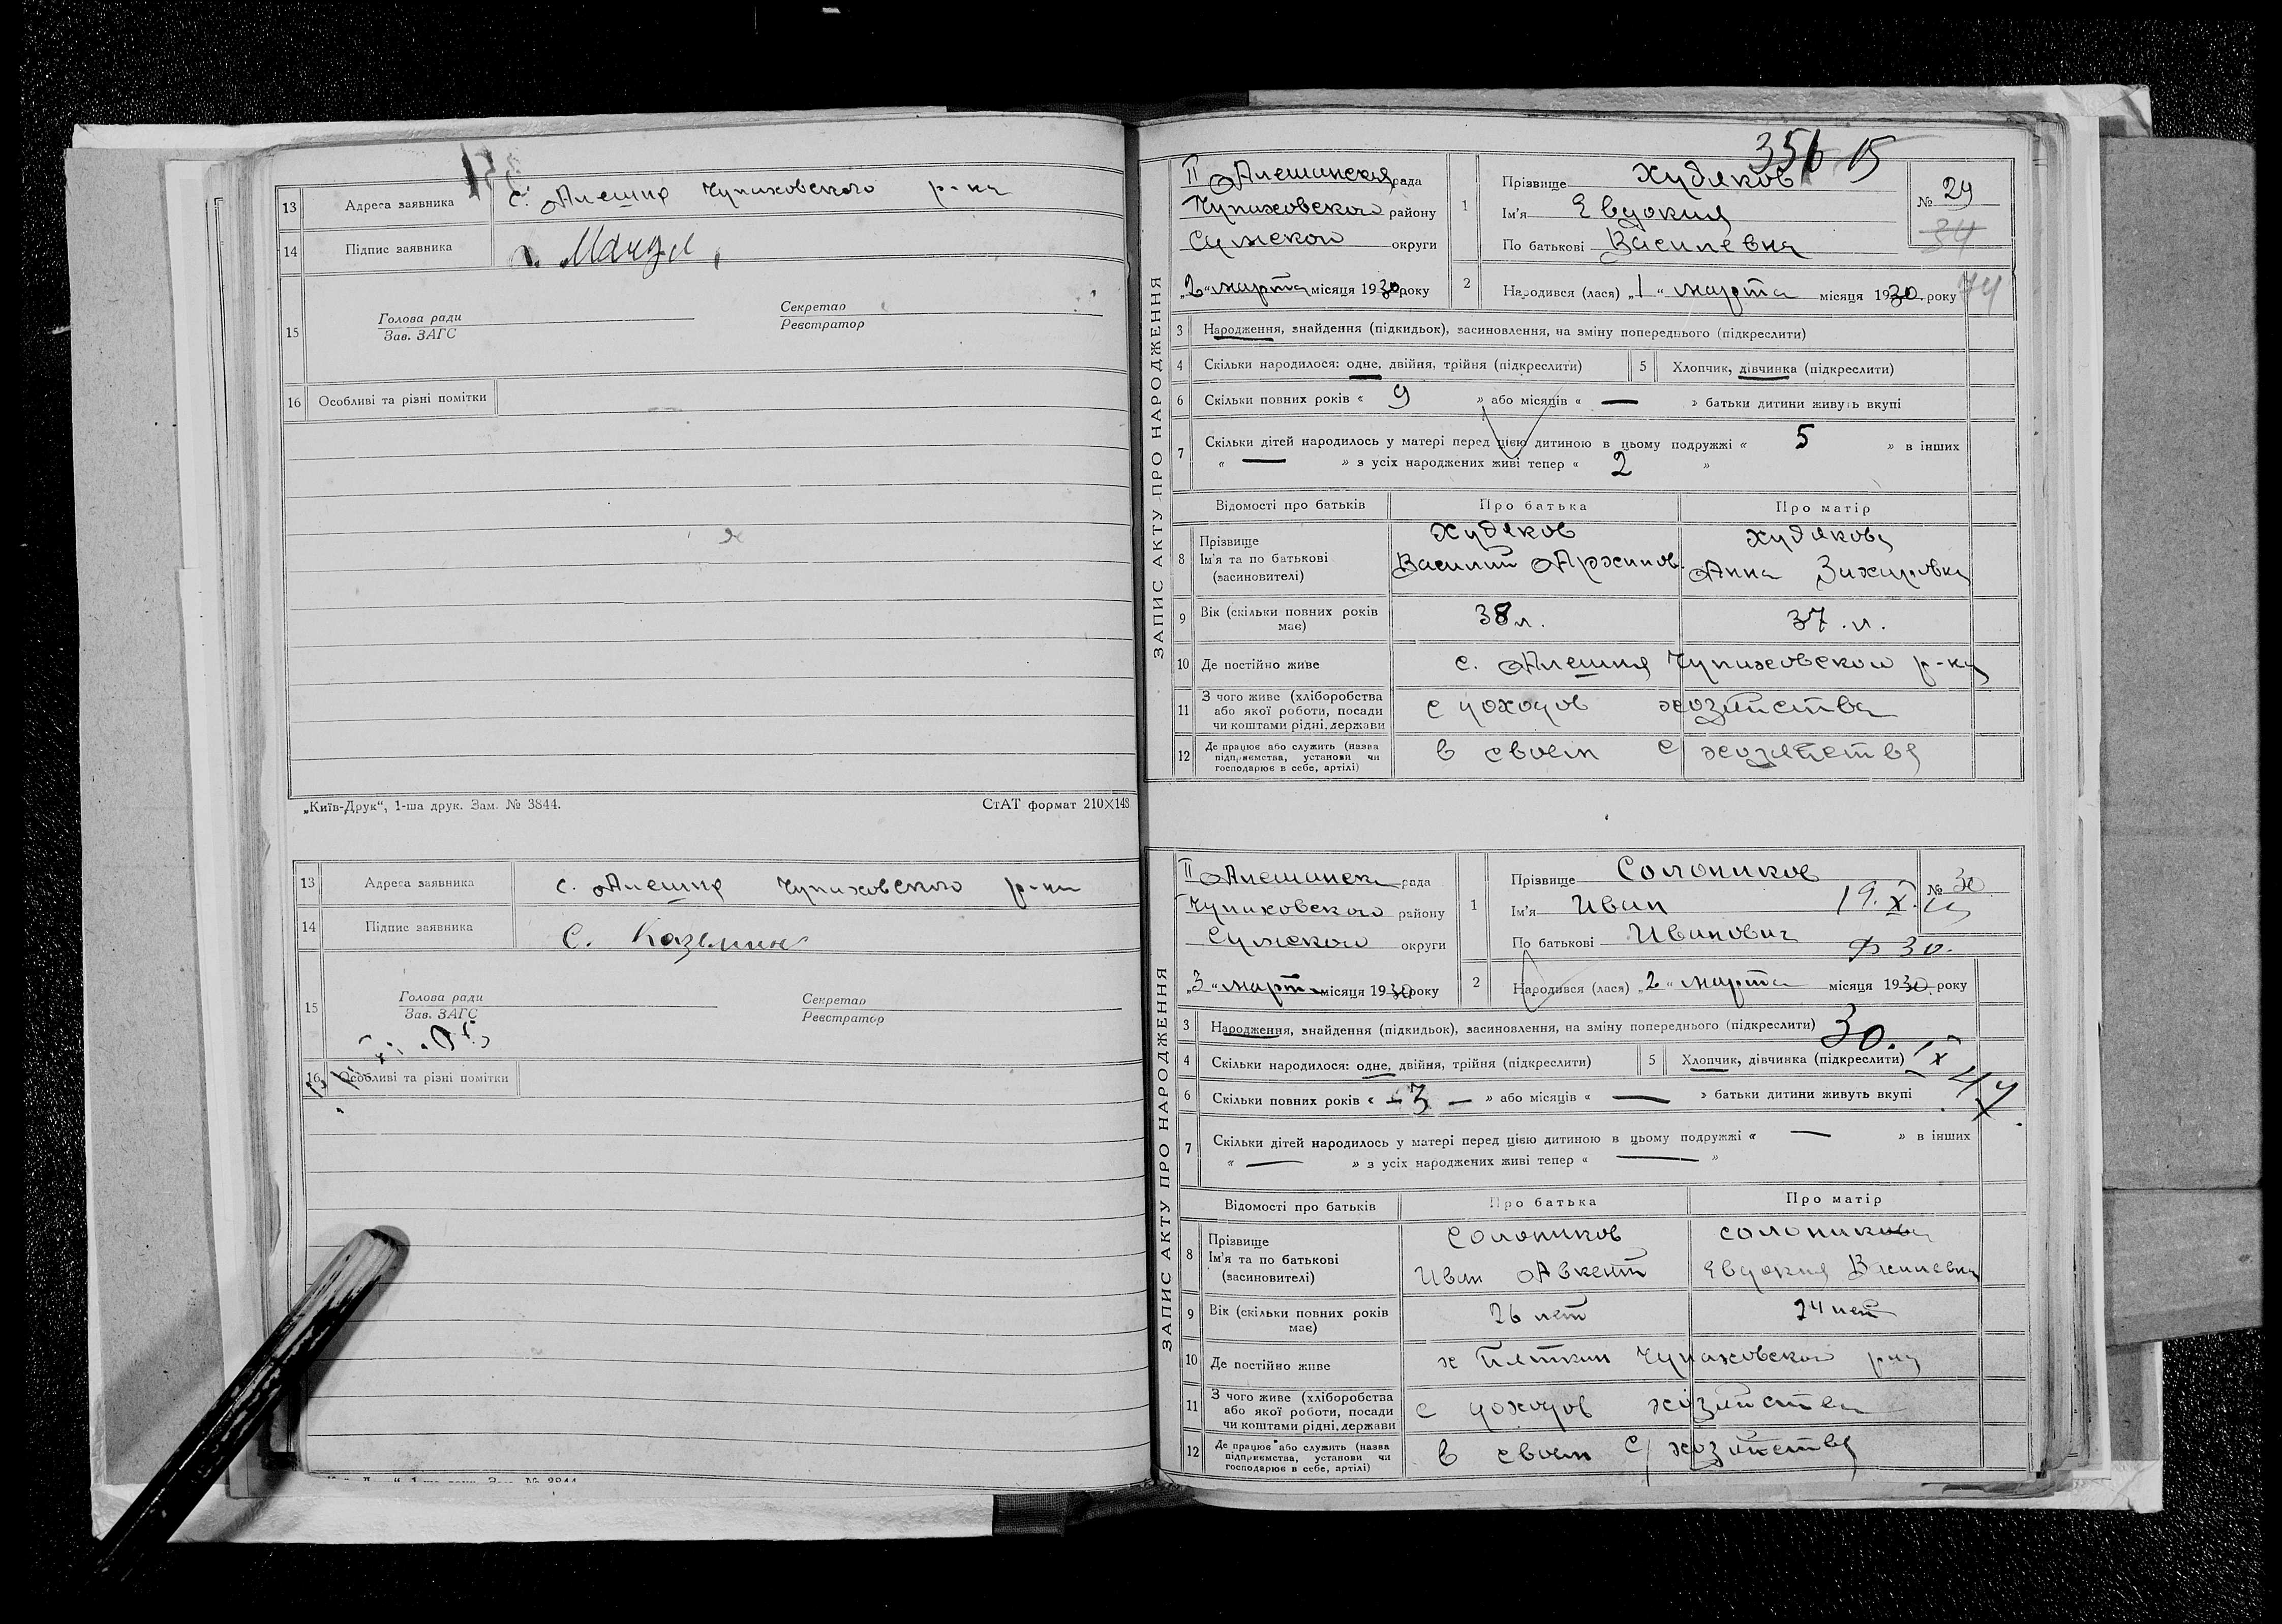 13 Адреса заявника с. Алешня Чупаховского р-на
14 Підпис заявника
15 Голова ради
Зав. ЗАГС
Секретар
Реєстратор
16 Особливі та різні помітки
„Київ-Друк“, 1-ша друк. Зам. № 3844. СтАТ формат 210×148
13 Адреса заявника с. Алешня Чупаховского р-на
14 Підпис заявника С.
15 Голова ради
Зав. ЗАГС
Секретар
Реєстратор
16 Особливі та різні помітки
356 15
ЗАПИС АКТУ ПРО НАРОДЖЕННЯ
II Алешанская рада
Чупаховского району
Сумского округи
„2“ марта місяця 1930 року
1 Прізвище Худяков
Ім'я Евдокия
По батькові Василевна
№ 29
34
2 Народився (лася) „1“ марта місяця 1930 року
3 Народження, знайдення (підкидьок), засиновлення, на зміну попереднього (підкреслити)
4 Скільки народилося: одне, двійня, трійня (підкреслити) 5 Хлопчик, дівчинка (підкреслити)
6 Скільки повних років « 9 » або місяців « — » батьки дитини живуть вкупі
7 Скільки дітей народилось у матері перед цією дитиною в цьому подружжі « 5 » в інших
« — » з усіх народжених живі тепер « 2 »
Відомості про батьків Про батька Про матір
8 Прізвище
Ім'я та по батькові
(засиновителі)
Худяков
Василий
Худякова
Анна Захаровна
9 Вік (скільки повних років має) 38 л. 37 л.
10 Де постійно живе с. Алешня Чупаховского р-на
11 З чого живе (хліборобства
або якої роботи, посади
чи коштами рідні, держави
с доходов хозяйства
12 Де працює або служить (назва
підприємства, установи чи
господарює в себе, артілі)
в своем с/хозяйстве
ЗАПИС АКТУ ПРО НАРОДЖЕННЯ
II Алешанск рада
Чупаховского району
Сумского округи
„3“ марта місяця 1930 року
1 Прізвище Солопиков
Ім'я Иван
По батькові Иванович
№ 30
2 Народився (лася) „2“ марта місяця 1930 року
3 Народження, знайдення (підкидьок), засиновлення, на зміну попереднього (підкреслити)
4 Скільки народилося: одне, двійня, трійня (підкреслити) 5 Хлопчик, дівчинка (підкреслити)
6 Скільки повних років « — 3 — » або місяців « — » батьки дитини живуть вкупі
7 Скільки дітей народилось у матері перед цією дитиною в цьому подружжі « — » в інших
« — » з усіх народжених живі тепер « — »
Відомості про батьків Про батька Про матір
8 Прізвище
Ім'я та по батькові
(засиновителі)
Солопиков
Иван Авкент
Солопикова
Евдокия Василевна
9 Вік (скільки повних років має) 26 лет 24 лет
10 Де постійно живе х Чупаховского рна
11 З чого живе (хліборобства
або якої роботи, посади
чи коштами рідні, держави
с доходов хозяйства
12 Де працює або служить (назва
підприємства, установи чи
господарює в себе, артілі)
в своем с/хозяйстве